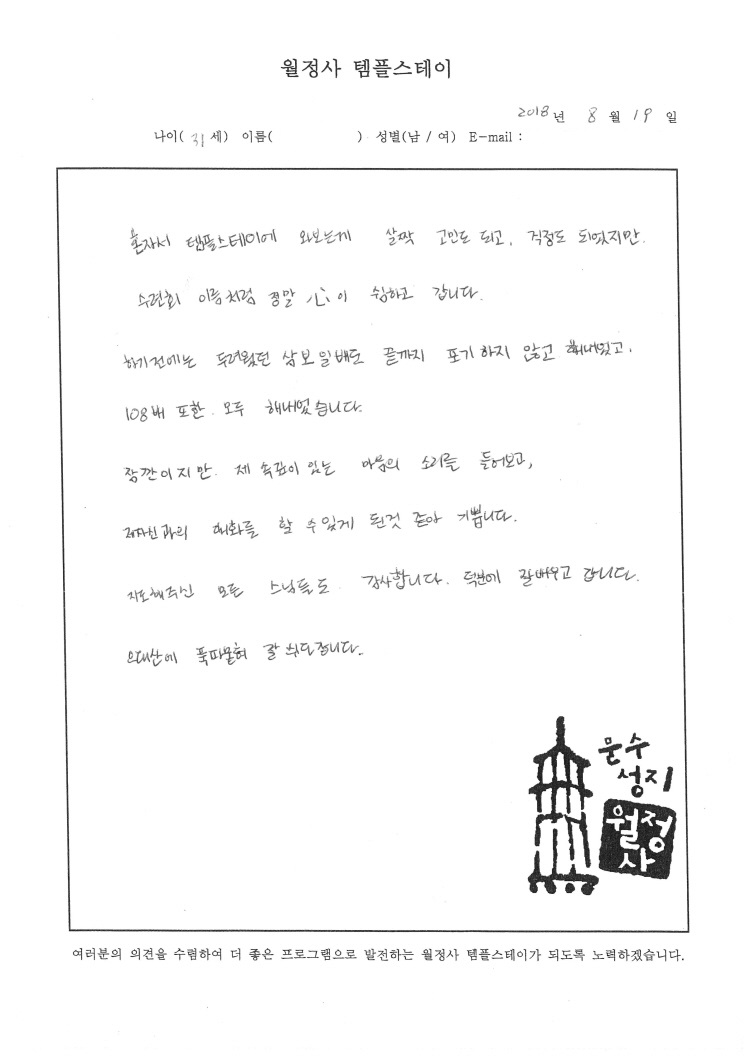 월정사 템플스테이
2018년 8월 19일
나이( 31세) 이름( ) 성별(남 / 여) E-mail :
혼자서 템플스테이에 와보는게 살짝 고민도 되고, 걱정도 되었지만.
수련회 이름처럼 정말 心이 쉼하고 갑니다.
하기전에는 두려웠던 삼보일배도 끝까지 포기하지 않고 해내었고,
108배 또한. 모두 해내었습니다.
잠깐이지만. 제 속깊이 있는 마음의 소리를 들어보고,
제자신과의 대화를 할 수 있게 된것 같아 기쁩니다.
지도해주신 모든 스님들도. 감사합니다. 덕분에 잘 배우고 갑니다.
오대산에 푹파묻혀 잘 쉬다갑니다.
문수
성지
월정
사
여러분의 의견을 수렴하여 더 좋은 프로그램으로 발전하는 월정사 템플스테이가 되도록 노력하겠습니다.